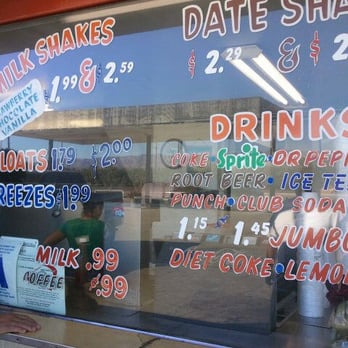 MILK SHAKES
1.99 & $2.59
STRAWBERRY
CHOCOLATE
VANILLA
LOATS 1.79 $2.00
REEZES $1.99
MILK .99
$.99
COFFEE
DATE SHA
$2.29 & $
DRINKS
COKE • Sprite • DR PEPP
ROOT BEER • ICE TE
PUNCH • CLUB SODA
1.15 $1.45 JUMBO
DIET COKE • LEMON